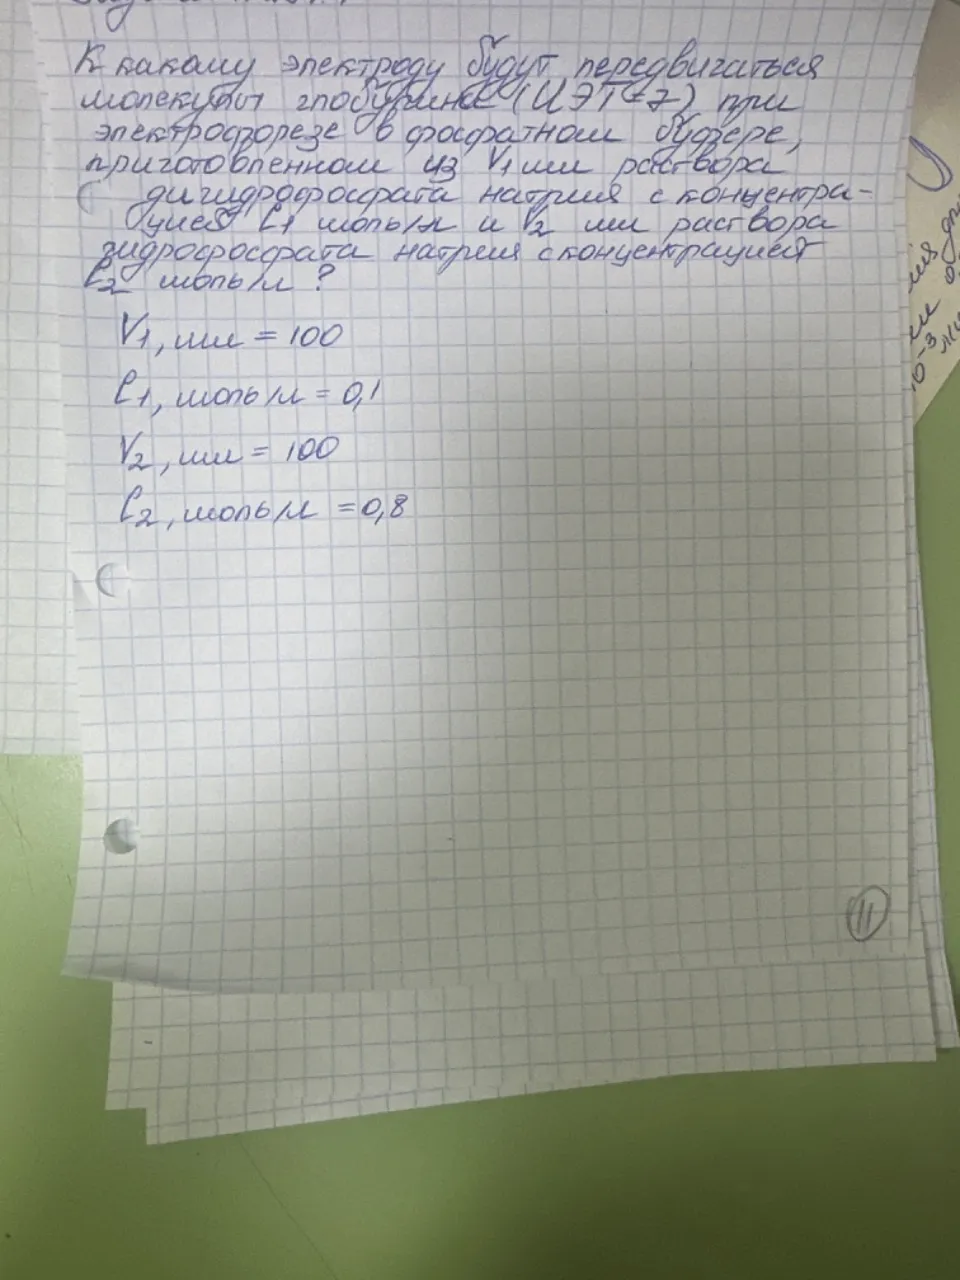 К какому электроду будут передвигаться
молекулы глобулина (ИЭТ=7) при
электрофорезе в фосфатном буфере,
приготовленном из V1 мл раствора
дигидрофосфата натрия с концентра-
цией C1 моль/л и V2 мл раствора
гидрофосфата натрия с концентрацией
C2 моль/л ?
V1, мл = 100
C1, моль/л = 0,1
V2, мл = 100
C2, моль/л = 0,8
11